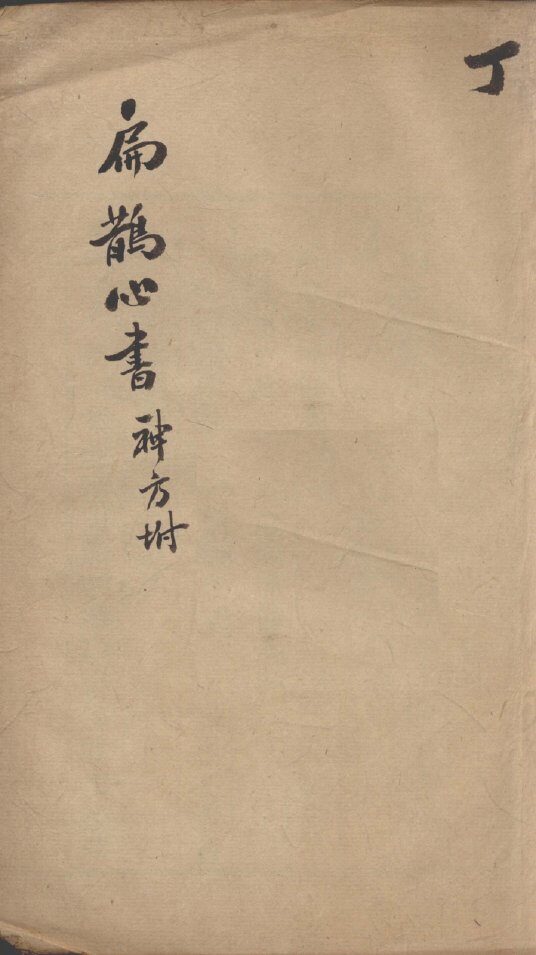 丁
扁鵲心書 神方坿